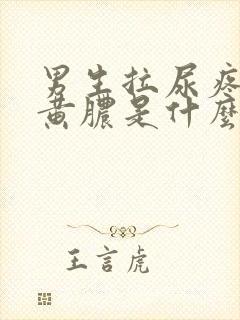 男生拉尿疼
黄膿是什麼
王言虎